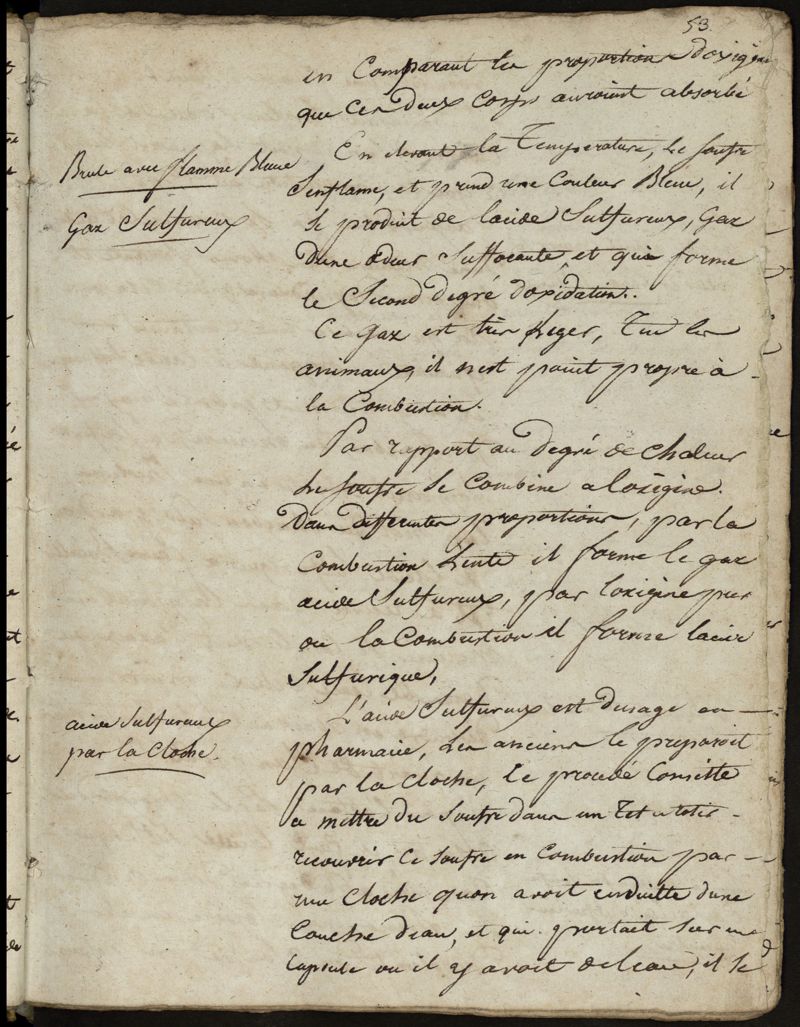 53.
en Comparant les proportions doxigène
que ces deux corps auroient absorbé
Brule avec flamme Bleue
En elevant la Température, le soufre
Senflame, et prend une Couleur Bleue, il
Gaz Sulfureux
se produit de lacide Sulfureux, Gaz
dune odeur Suffocante, et qui forme
le Second degré doxidation.
Ce gaz est très Leger, Tue les
animaux, il nest point propre à
la Combustion.
Par rapport au degré de chaleur
Le soufre se Combine a loxigène.
Dans differentes proportions, par la
Combustion Lente il forme le gaz
acide Sulfureux, par loxigène pur
ou la Combustion il forme lacide
Sulfurique,
acide Sulfureux
par la Cloche.
L'acide Sulfureux est dusage en
pharmacie, Les anciens le preparoit
par la cloche, le procedé Consiste
a mettre du soufre dans un Tet a rotir
recouvrir ce soufre en Combustion par
une cloche quon avoit enduitte dune
Couche deau, et qui portait sur une
Capsule ou il y avoit de leau, il se